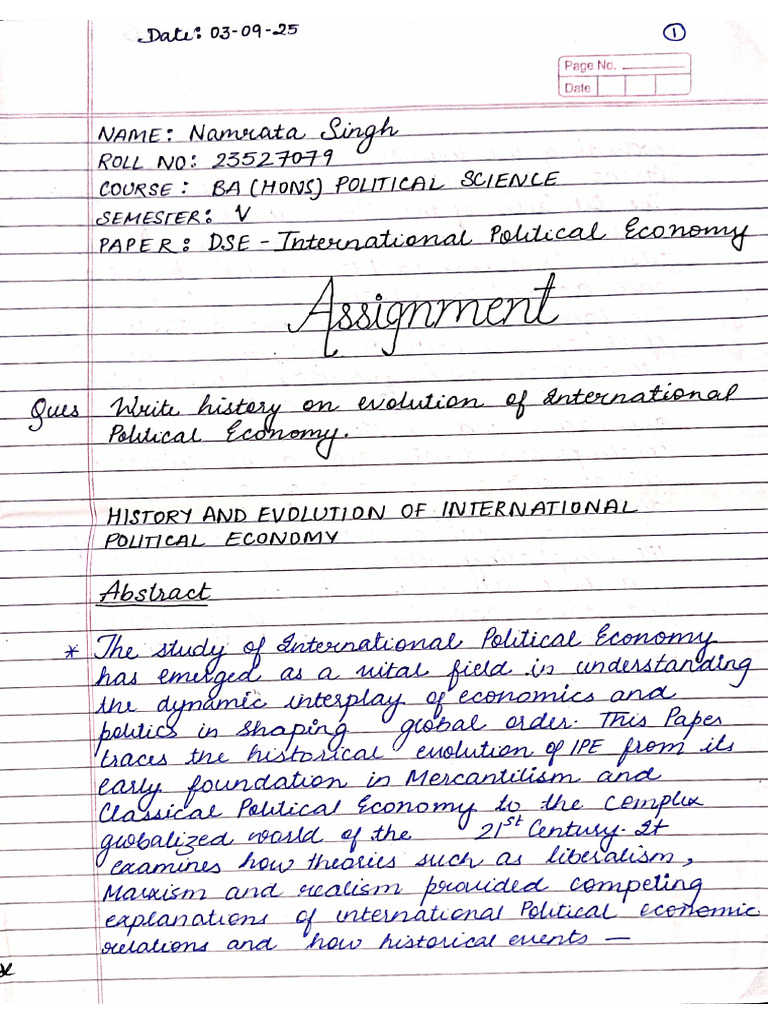 Date: 03-09-25
1
Page No.
Date
NAME: Namrata Singh
ROLL NO: 23527079
COURSE: BA (HONS) POLITICAL SCIENCE
SEMESTER: V
PAPER: DSE - International Political Economy
Assignment
Ques Write history on evolution of International
Political Economy.
HISTORY AND EVOLUTION OF INTERNATIONAL
POLITICAL ECONOMY
Abstract
* The study of International Political Economy
has emerged as a vital field in understanding
the dynamic interplay of economics and
politics in shaping global order. This Paper
traces the historical evolution of IPE from its
early foundation in Mercantilism and
Classical Political Economy to the complex
globalized world of the 21st Century. It
examines how theories such as liberalism,
Marxism and realism provided competing
explanations of international Political economic
relations and how historical events —